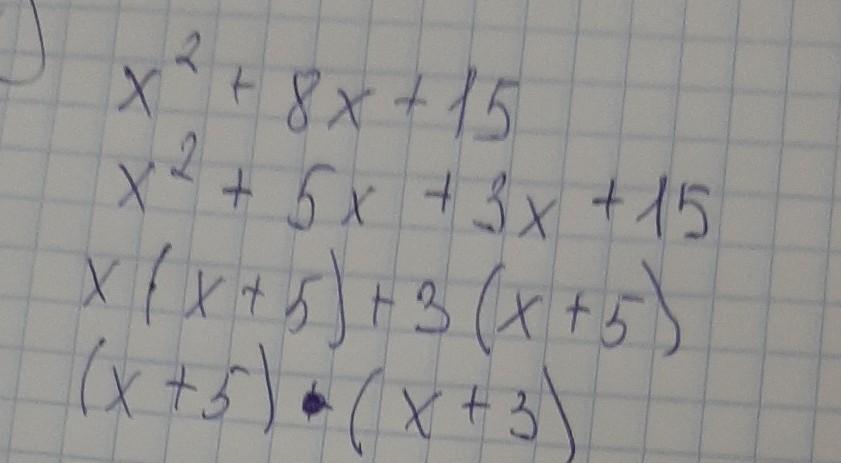 )
x² + 8x + 15
x² + 5x + 3x + 15
x(x + 5) + 3(x + 5)
(x + 5) • (x + 3)